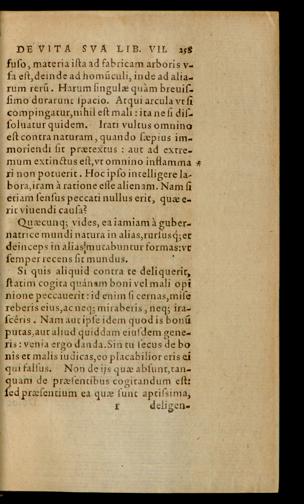 DE VITA SVA LIB. VII. 258
fuso, materia ista ad fabricam arboris v-
sa est, deinde ad homúculi, inde ad alia-
rum rerū. Harum singulæ quàm breuis-
simo durarunt spacio. Atqui arcula vt si
compingatur, nihil est mali: ita ne si dis-
soluatur quidem. Irati vultus omnino
est contra naturam, quando sæpius im-
moriendi sit prætextus: aut ad extre-
mum extinctus est, vt omnino inflamma *
ri non potuerit. Hoc ipso intelligere la-
bora, iram à ratione esse alienam. Nam si
etiam sensus peccati nullus erit, quæ e-
rit viuendi causa?
Quæcunq; vides, ea iamiam à guber-
natrice mundi natura in alias, rursusq́; et
deinceps in alias mutabuntur formas: vt
semper recens sit mundus.
Si quis aliquid contra te deliquerit,
statim cogita quánam boni vel mali opi
nione peccauerit: id enim si cernas, mise
reberis eius, ac neq; miraberis, neq; ira-
scêris. Nam aut ipse idem quod is bonū
putas, aut aliud quiddam eiusdem gene-
ris: venia ergo danda. Sin tu secus de bo
nis et malis iudicas, eo placabilior eris ei
qui falsus. Non de ijs quæ absunt, tan-
quam de præsentibus cogitandum est:
sed præsentium ea quæ sunt aptissima,
r deligen-